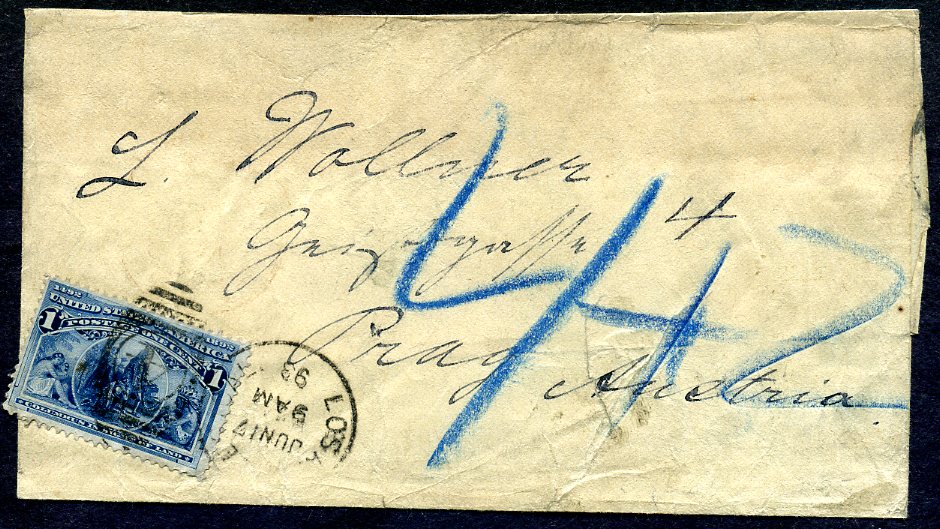 L. Wollner
Geistgasse 4
Prag
Austria
42
1492 1892
UNITED STATES OF AMERICA
POSTAGE ONE CENT
1 1
COLUMBUS IN SIGHT OF LAND
LOS
JUN 17
9 AM
93